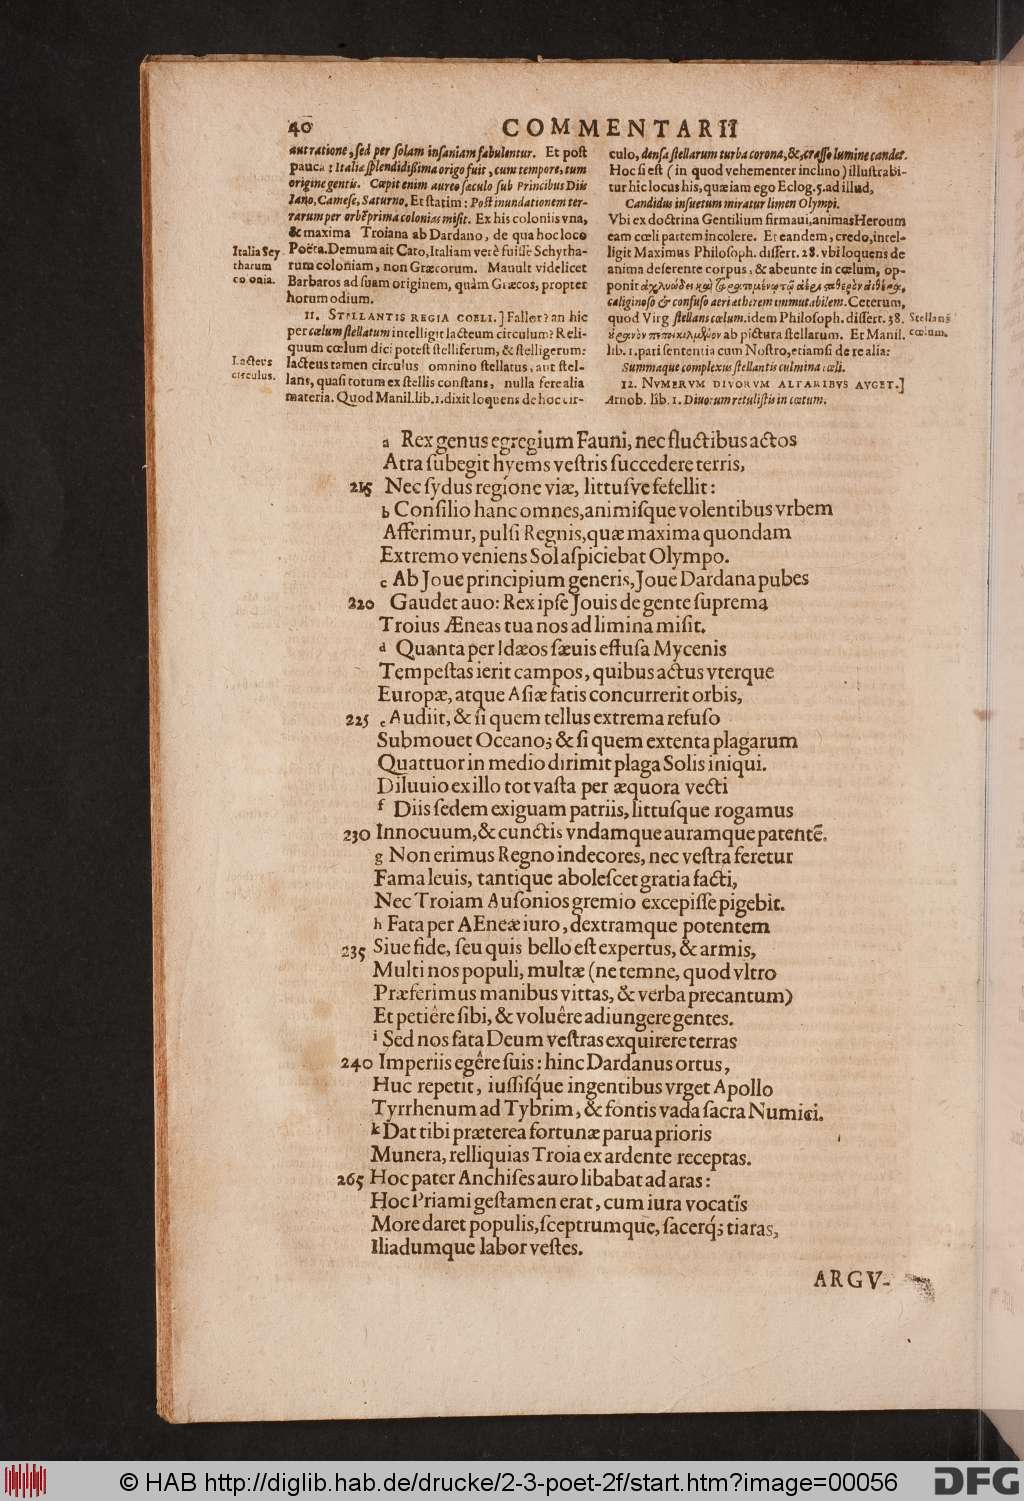 40
COMMENTARII
aut ratione, sed per solam insaniam fabulentur. Et post
pauca: Italiæ splendidissima origo fuit, cum tempore, tum
origine gentis. Cœpit enim aureo sæculo sub Principibus Diis
Iano, Camese, Saturno. Et statim: Post inundationem ter-
rarum per orbē prima colonias misit. Ex his coloniis vna,
& maxima Troiana ab Dardano, de qua hoc loco
Poëta. Demum ait Cato, Italiam verè fuisse Scytha-
rum coloniam, non Græcorum. Mauult videlicet
Barbaros ad suam originem, quàm Græcos, propter
horum odium.
11. STELLANTIS REGIA COELI.] Fallor? an hic
per cœlum stellatum intelligit lacteum circulum? Reli-
quum cœlum dici potest stelliferum, & stelligerum:
lacteus tamen circulus omnino stellatus, aut stel-
lans, quasi totum ex stellis constans, nulla fere alia
materia. Quod Manil. lib. 1. dixit loquens de hoc cir-
Italia Scy
tharum
colonia.
Lacteus
circulus.
culo, densa stellarum turba corona, &, crasso lumine candet.
Hoc si est (in quod vehementer inclino) illustrabi-
tur hic locus his, quæ iam ego Eclog. 5. ad illud,
Candidus insuetum miratur limen Olympi.
Vbi ex doctrina Gentilium firmaui, animas Heroum
eam cœli partem incolere. Et eandem, credo, intel-
ligit Maximus Philosoph. dissert. 28. vbi loquens de
anima deserente corpus, & abeunte in cœlum, op-
ponit
caliginoso & confuso aeri aetherem immutabilem. Ceterum,
quod Virg stellans cœlum. idem Philosoph. dissert. 38.
ab pictura stellarum. Et Manil.
lib. 1. pari sententia cum Nostro, etiamsi de re alia:
Summaque complexus stellantis culmina cœli.
12. NVMERVM DIVORVM ALTARIBVS AVGET.]
Arnob. lib. 1. Diuorum retulistis in cœtum.
Stellans
cœlum.
a Rex genus egregium Fauni, nec fluctibus actos
Atra subegit hyems vestris succedere terris,
215 Nec sydus regione viæ, littusve fefellit:
b Consilio hanc omnes, animisque volentibus vrbem
Afferimur, pulsi Regnis, quæ maxima quondam
Extremo veniens Sol aspiciebat Olympo.
c Ab Joue principium generis, Joue Dardana pubes
220 Gaudet auo: Rex ipse Jouis de gente suprema
Troius Æneas tua nos ad limina misit.
d Quanta per Idæos sæuis effusa Mycenis
Tempestas ierit campos, quibus actus vterque
Europæ, atque Asiæ fatis concurrerit orbis,
225 e Audiit, & si quem tellus extrema refuso
Submouet Oceano; & si quem extenta plagarum
Quattuor in medio dirimit plaga Solis iniqui.
Diluuio ex illo tot vasta per æquora vecti
f Diis sedem exiguam patriis, littusque rogamus
230 Innocuum, & cunctis vndamque auramque patentē.
g Non erimus Regno indecores, nec vestra feretur
Fama leuis, tantique abolescet gratia facti,
Nec Troiam Ausonios gremio excepisse pigebit.
h Fata per AEneæ iuro, dextramque potentem
235 Siue fide, seu quis bello est expertus, & armis,
Multi nos populi, multæ (ne temne, quod vltro
Præferimus manibus vittas, & verba precantum)
Et petiêre sibi, & voluêre adiungere gentes.
i Sed nos fata Deum vestras exquirere terras
240 Imperiis egêre suis: hinc Dardanus ortus,
Huc repetit, iussisq́ue ingentibus vrget Apollo
Tyrrhenum ad Tybrim, & fontis vada sacra Numici.
k Dat tibi præterea fortunæ parua prioris
Munera, relliquias Troia ex ardente receptas.
265 Hoc pater Anchises auro libabat ad aras:
Hoc Priami gestamen erat, cum iura vocatis
More daret populis, sceptrumque, sacerq́; tiaras,
Iliadumque labor vestes.
ARGV-
© HAB http://diglib.hab.de/drucke/2-3-poet-2f/start.htm?image=00056
DFG